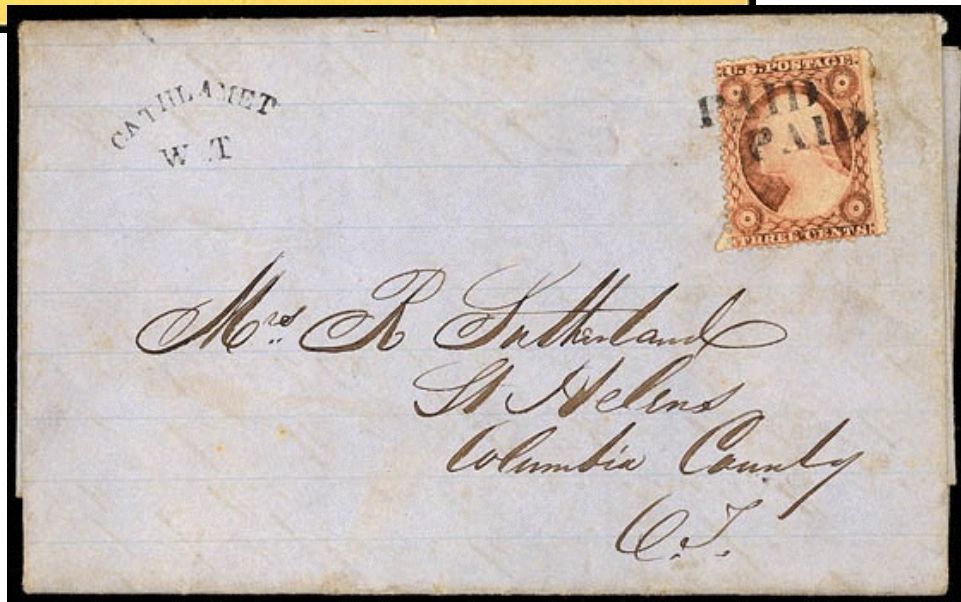 CATHLAMET
W.T
U.S. POSTAGE.
PAID
PAID
THREE CENTS
Mrs. R Sutherland
St Helens
Columbia County
O.T.